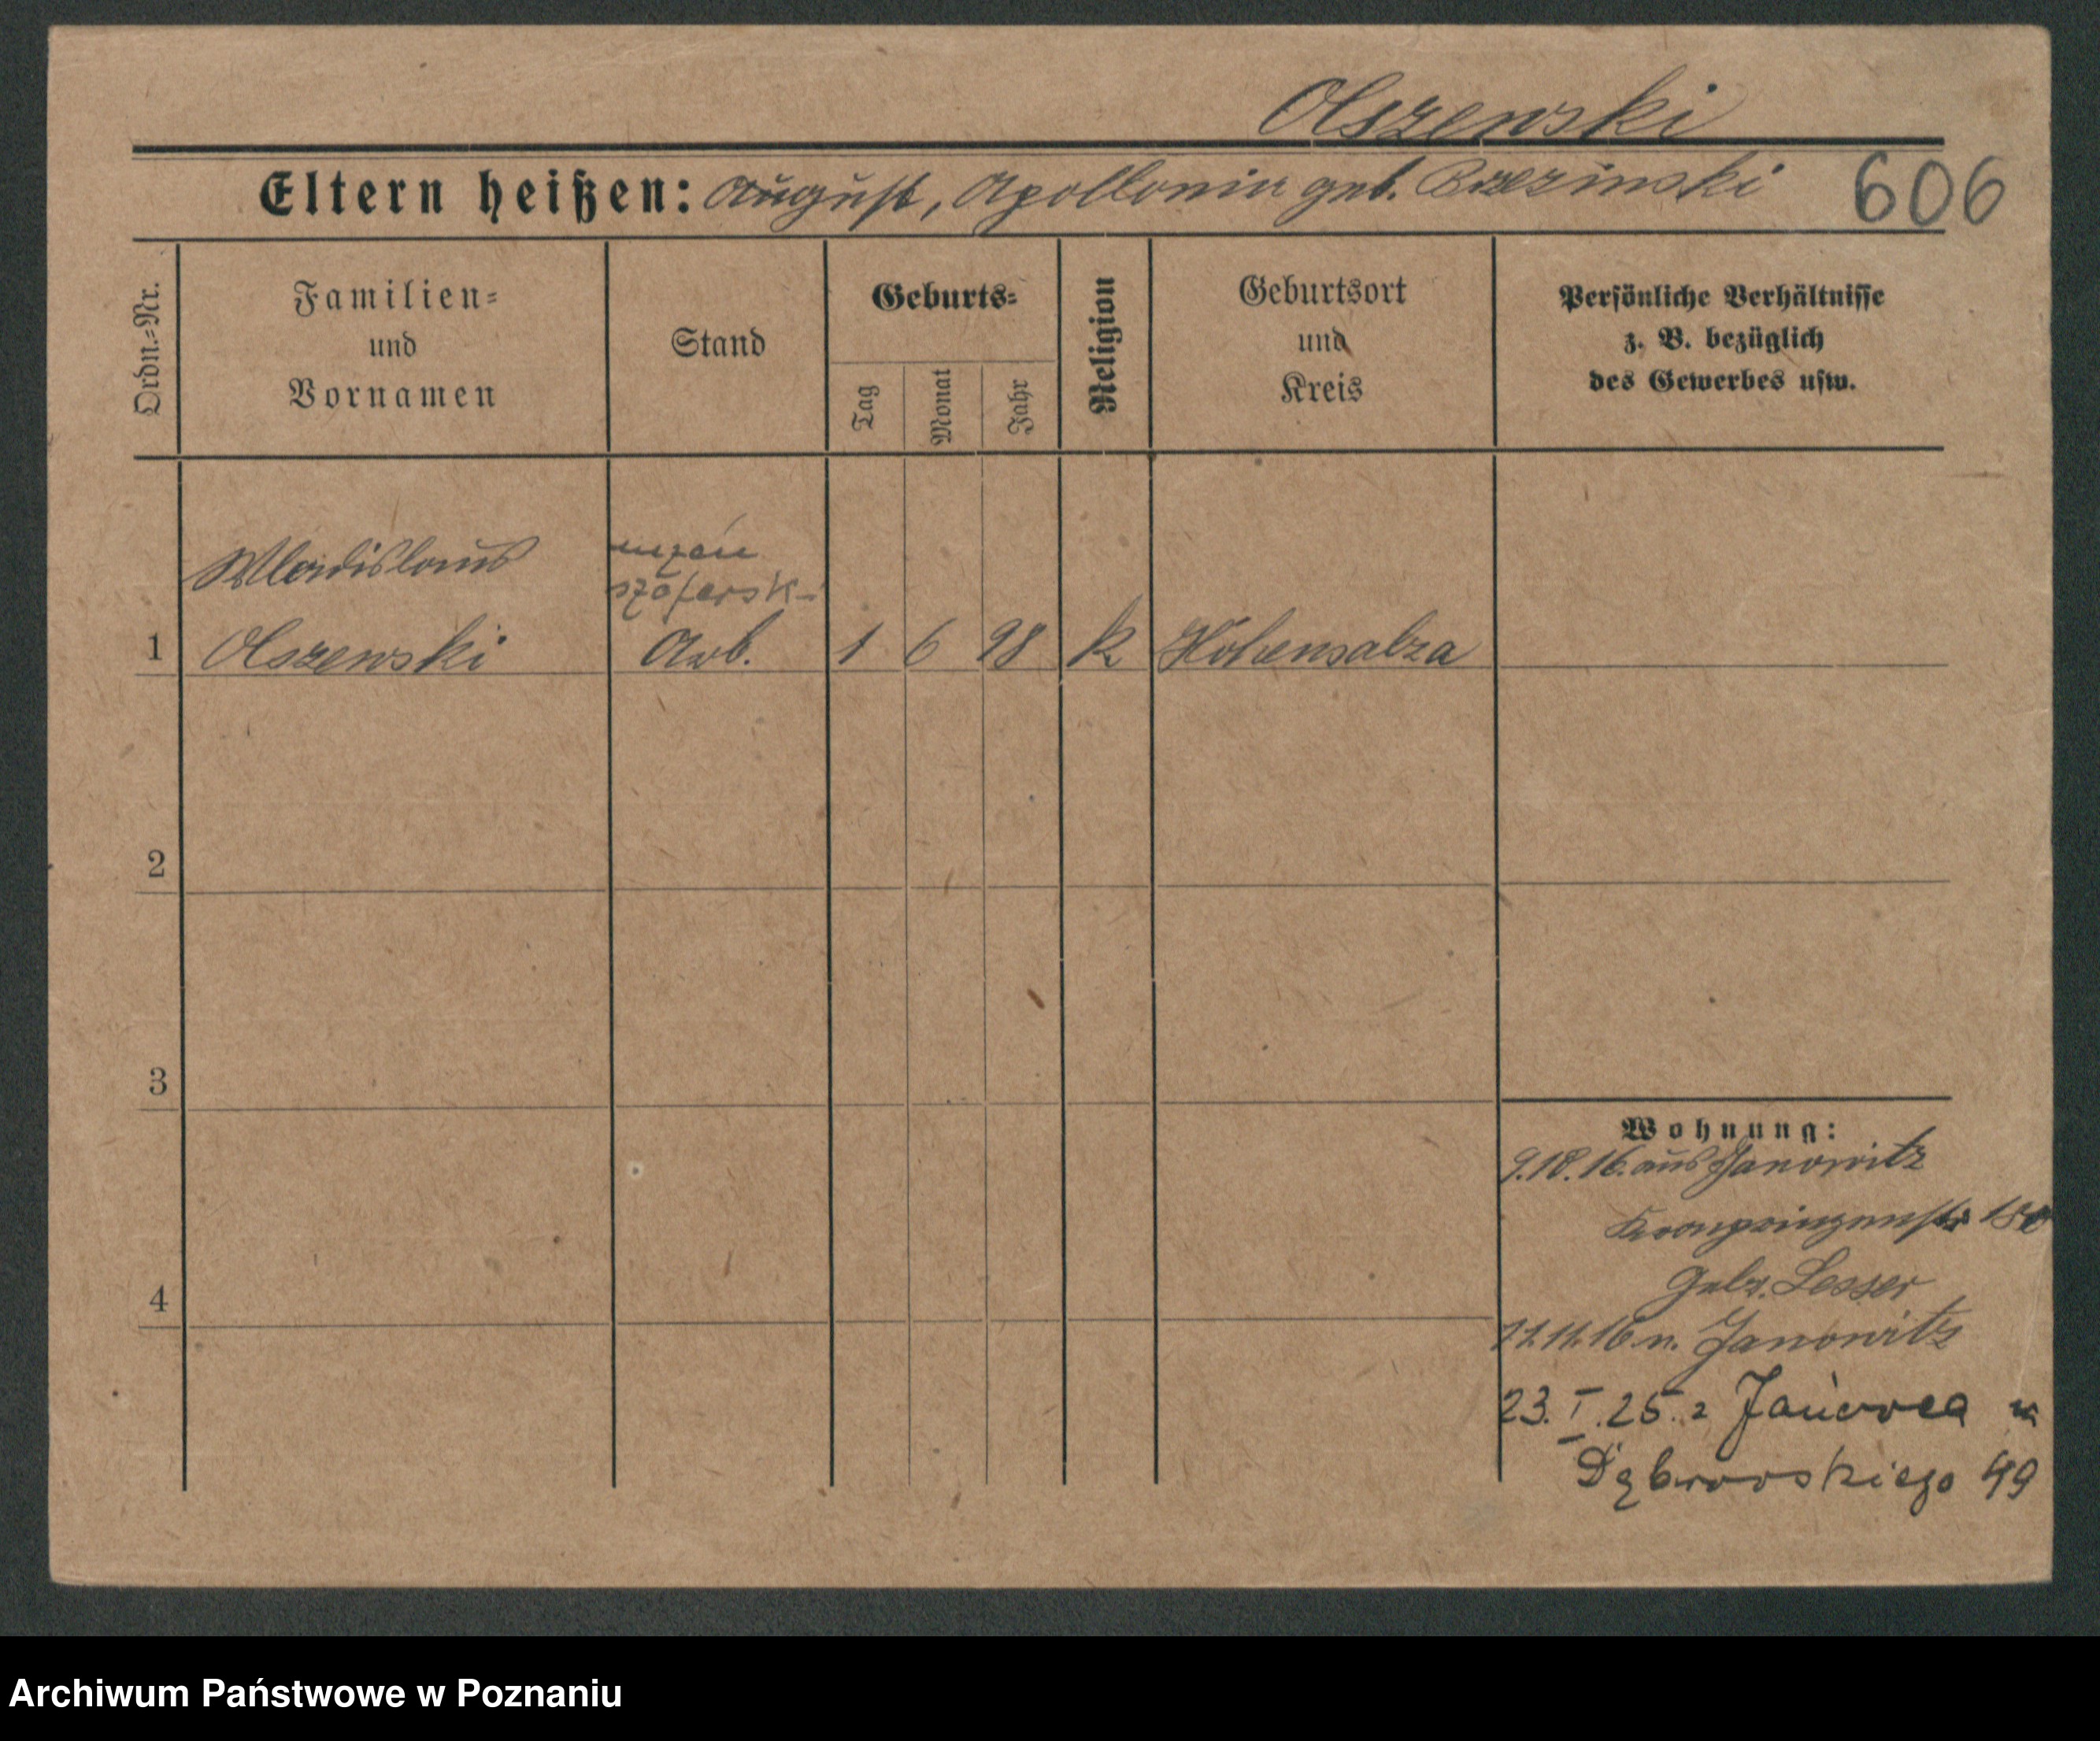 Olszewski
Eltern heißen: August, Apollonia geb. Brzezinski 606
Ordn.-Nr.
Familien-
und
Vornamen
Stand
Geburts-
Tag
Monat
Jahr
Religion
Geburtsort
und
Kreis
Persönliche Verhältnisse
z. B. bezüglich
des Gewerbes usw.
Wladislaus
szofersk
1 Olszewski Arb. 1 6 98 k Hohensalza
2
3
Wohnung:
9.10.16. aus Janowitz
Kronprinzenstr
4
Lesser
11.16 n. Janowitz
23. I. 25. z Janowca
Dąbrowskiego 49
Archiwum Państwowe w Poznaniu